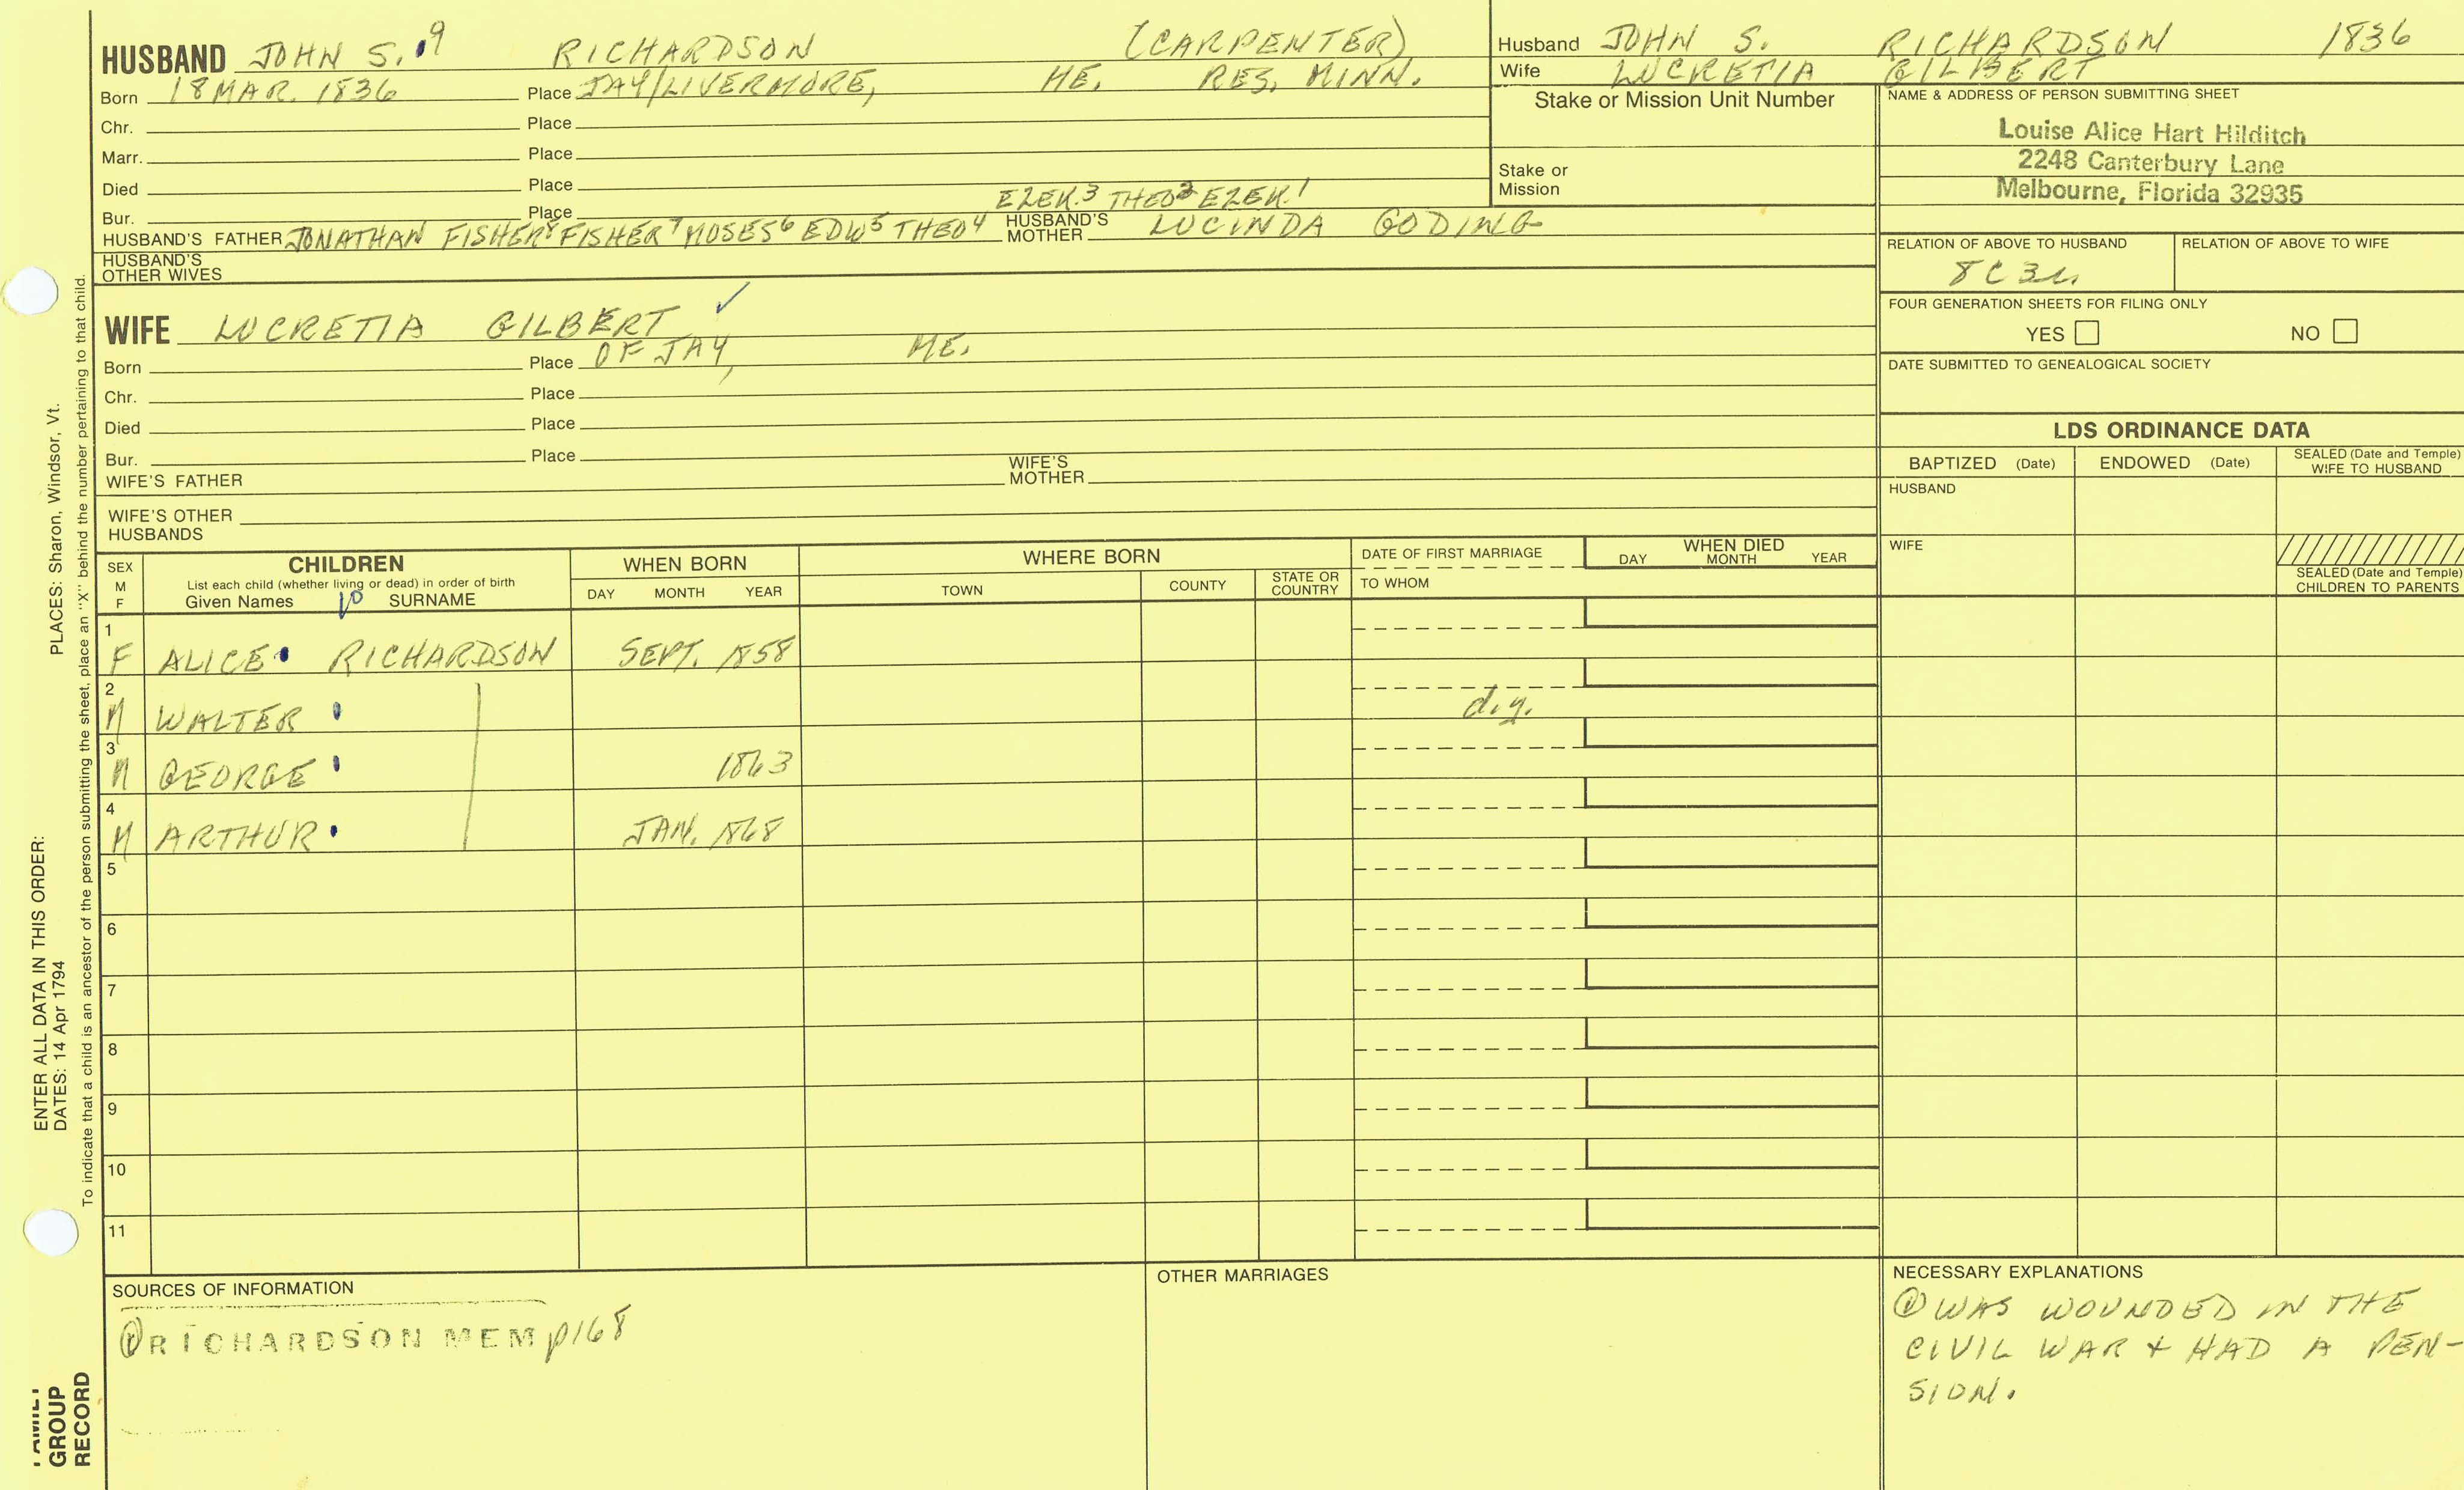 HUSBAND JOHN S. 9 RICHARDSON (CARPENTER)
Born 18 MAR. 1836 Place JAY/LIVERMORE, ME. RES. MINN.
Chr. Place
Marr. Place
Died Place
Bur. Place EZEK.3 THEO2 EZEK.1
HUSBAND'S FATHER JONATHAN FISHER8 FISHER7 MOSES6 EDW5 THEO4 HUSBAND'S MOTHER LUCINDA GODING
HUSBAND'S OTHER WIVES
WIFE LUCRETIA GILBERT ✓
Born Place OF JAY, ME.
Chr. Place
Died Place
Bur. Place
WIFE'S FATHER WIFE'S MOTHER
WIFE'S OTHER HUSBANDS
Husband JOHN S. RICHARDSON 1836
Wife LUCRETIA GILBERT
Stake or Mission Unit Number
Stake or Mission
NAME & ADDRESS OF PERSON SUBMITTING SHEET
Louise Alice Hart Hilditch
2248 Canterbury Lane
Melbourne, Florida 32935
RELATION OF ABOVE TO HUSBAND RELATION OF ABOVE TO WIFE
8C3r.
FOUR GENERATION SHEETS FOR FILING ONLY
YES NO
DATE SUBMITTED TO GENEALOGICAL SOCIETY
LDS ORDINANCE DATA
BAPTIZED (Date) ENDOWED (Date) SEALED (Date and Temple) WIFE TO HUSBAND
HUSBAND
WIFE
SEALED (Date and Temple) CHILDREN TO PARENTS
SEX M F
CHILDREN
List each child (whether living or dead) in order of birth
Given Names 10 SURNAME
WHEN BORN
DAY MONTH YEAR
WHERE BORN
TOWN COUNTY STATE OR COUNTRY
DATE OF FIRST MARRIAGE
TO WHOM
WHEN DIED
DAY MONTH YEAR
1
F ALICE RICHARDSON SEPT. 1858
2
M WALTER d.y.
3
M GEORGE 1863
4
M ARTHUR JAN. 1868
5
6
7
8
9
10
11
SOURCES OF INFORMATION
① RICHARDSON MEM p168
OTHER MARRIAGES
NECESSARY EXPLANATIONS
① WAS WOUNDED IN THE
CIVIL WAR + HAD A PEN-
SION.
ENTER ALL DATA IN THIS ORDER:
DATES: 14 Apr 1794 PLACES: Sharon, Windsor, Vt.
To indicate that a child is an ancestor of the person submitting the sheet, place an "X" behind the number pertaining to that child.
FAMILY
GROUP
RECORD